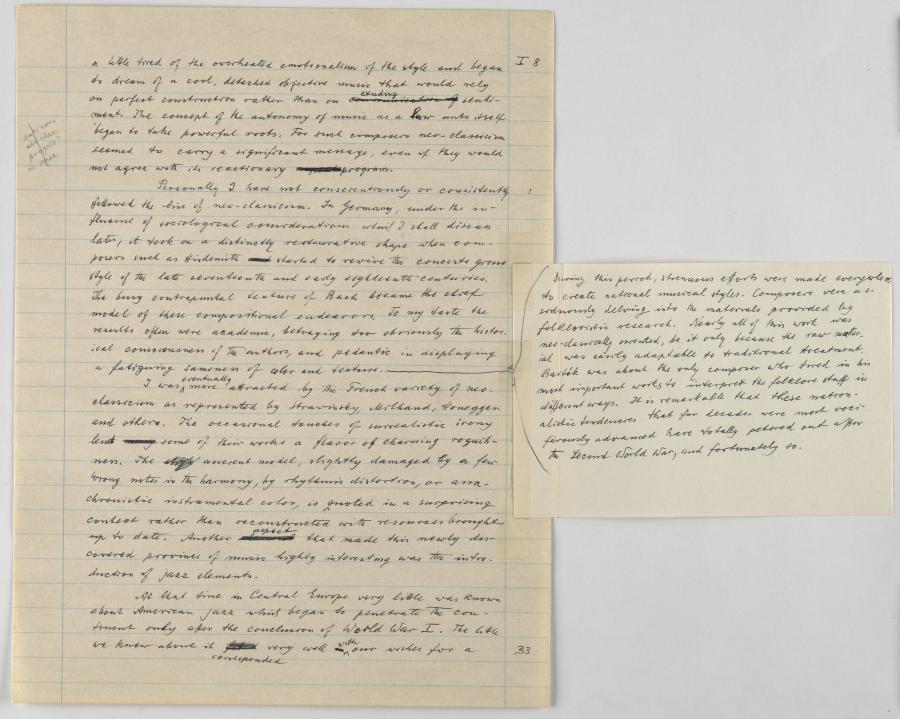 I 8
a little tired of the overheated emotionalism of the style and began
to dream of a cool, detached objective music that would rely
on perfect construction rather than on exuding senti-
ment. The concept of the autonomy of music as a law unto itself
began to take powerful roots. For such composers neo-classicism
seemed to carry a significant message, even if they would
not agree with its reactionary program.
Personally I have not conscientiously or consistently
followed the line of neo-classicism. In Germany, under the in-
fluence of sociological considerations which I shall discuss
later, it took on a distinctly restaurative shape when com-
posers such as Hindemith started to revive the concerto grosso
style of the late seventeenth and early eighteenth centuries.
The busy contrapuntal texture of Bach became the chief
model of these compositional endeavors. To my taste the
results often were academic, betraying too obviously the histor-
ical consciousness of the authors, and pedantic in displaying
a fatiguing sameness of color and texture.
I was eventually more attracted by the French variety of neo-
classicism as represented by Strawinsky, Milhaud, Honegger
and others. The occasional touches of surrealistic irony
lent some of their works a flavor of charming roguish-
ness. The ancient model, slightly damaged by a few
wrong notes in the harmony, by rhythmic distortion, or ana-
chronistic instrumental color, is quoted in a surprising
context rather than reconstructed with resources brought
up to date. Another aspect that made this newly dis-
covered province of music highly interesting was the intro-
duction of jazz elements.
At that time in Central Europe very little was known
about American jazz which began to penetrate the con-
tinent only after the conclusion of World War I. The little
we knew about it corresponded very well with our wishes for a
33
During this period, strenuous efforts were made everywhere
to create national musical styles. Composers were as-
siduously delving into the materials provided by
folkloristic research. Nearly all of this work was
neo-classically oriented, be it only because the raw mater-
ial was easily adaptable to traditional treatment.
Bartók was about the only composer who tried in his
most important works to interpret the folklore stuff in
different ways. It is remarkable that these nation-
alistic tendencies that for decades were most voci-
ferously advanced have totally petered out after
the Second World War, and fortunately so.